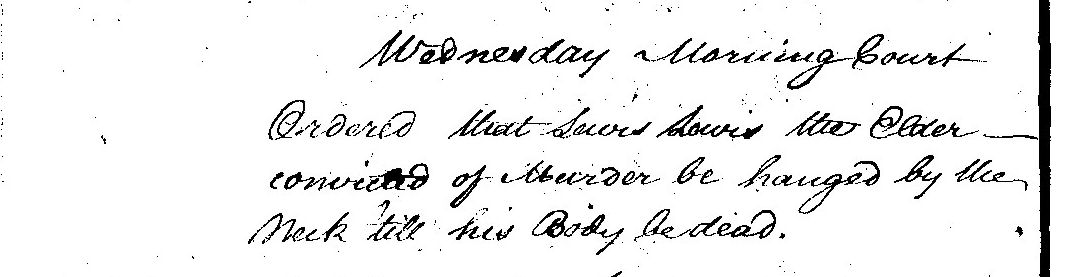 Wednesday Morning Court
Ordered that Lewis Lewis the Elder
convicted of Murder be hanged by the
Neck 'till his Body be dead.